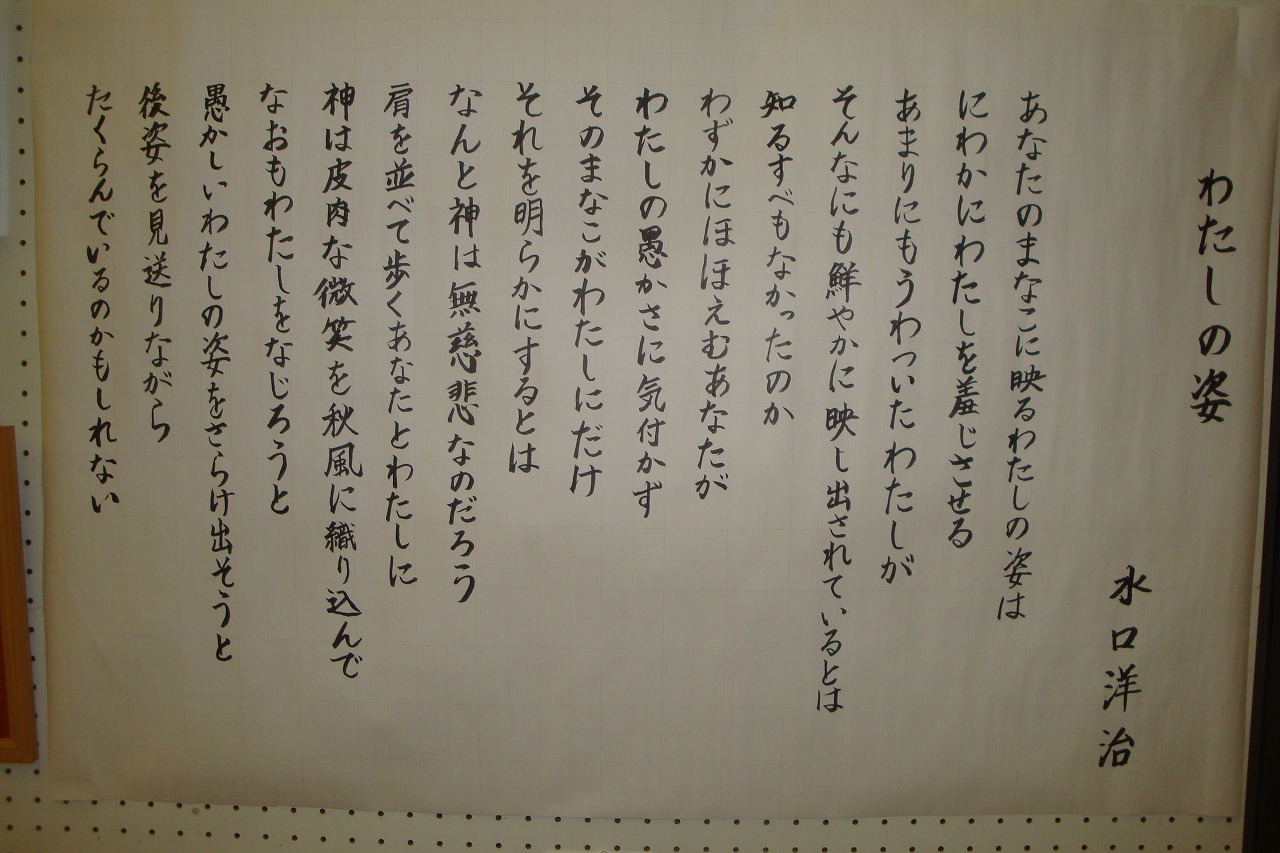 わたしの姿
水口洋治
あなたのまなこに映るわたしの姿は
にわかにわたしを羞じさせる
あまりにもうわついたわたしが
そんなにも鮮やかに映し出されているとは
知るすべもなかったのか
わずかにほほえむあなたが
わたしの愚かさに気付かず
そのまなこがわたしにだけ
それを明らかにするとは
なんと神は無慈悲なのだろう
肩を並べて歩くあなたとわたしに
神は皮肉な微笑を秋風に織り込んで
なおもわたしをなじろうと
愚かしいわたしの姿をさらけ出そうと
後姿を見送りながら
たくらんでいるのかもしれない